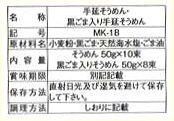 名称 手延そうめん・
黒ごま入り手延そうめん
記号 MK-1B
原材料名 小麦粉・黒ごま・天然海水塩・ごま油
内容量 そうめん 50g×10束
黒ごまそうめん 50g×8束
賞味期限 別記記載
保存方法 直射日光及び湿気を避けて保存
して下さい。
調理方法 しおりに記載